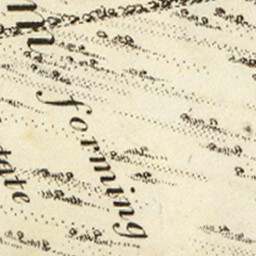 forming
tate